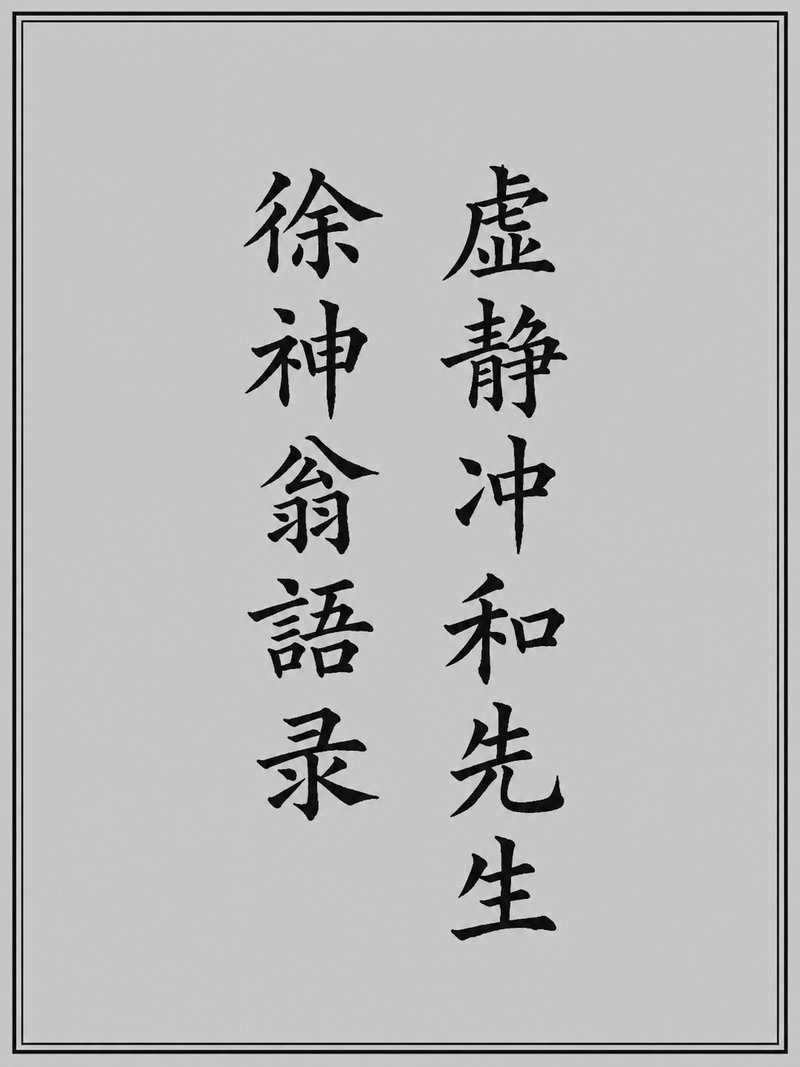 虚静冲和先生
徐神翁語录